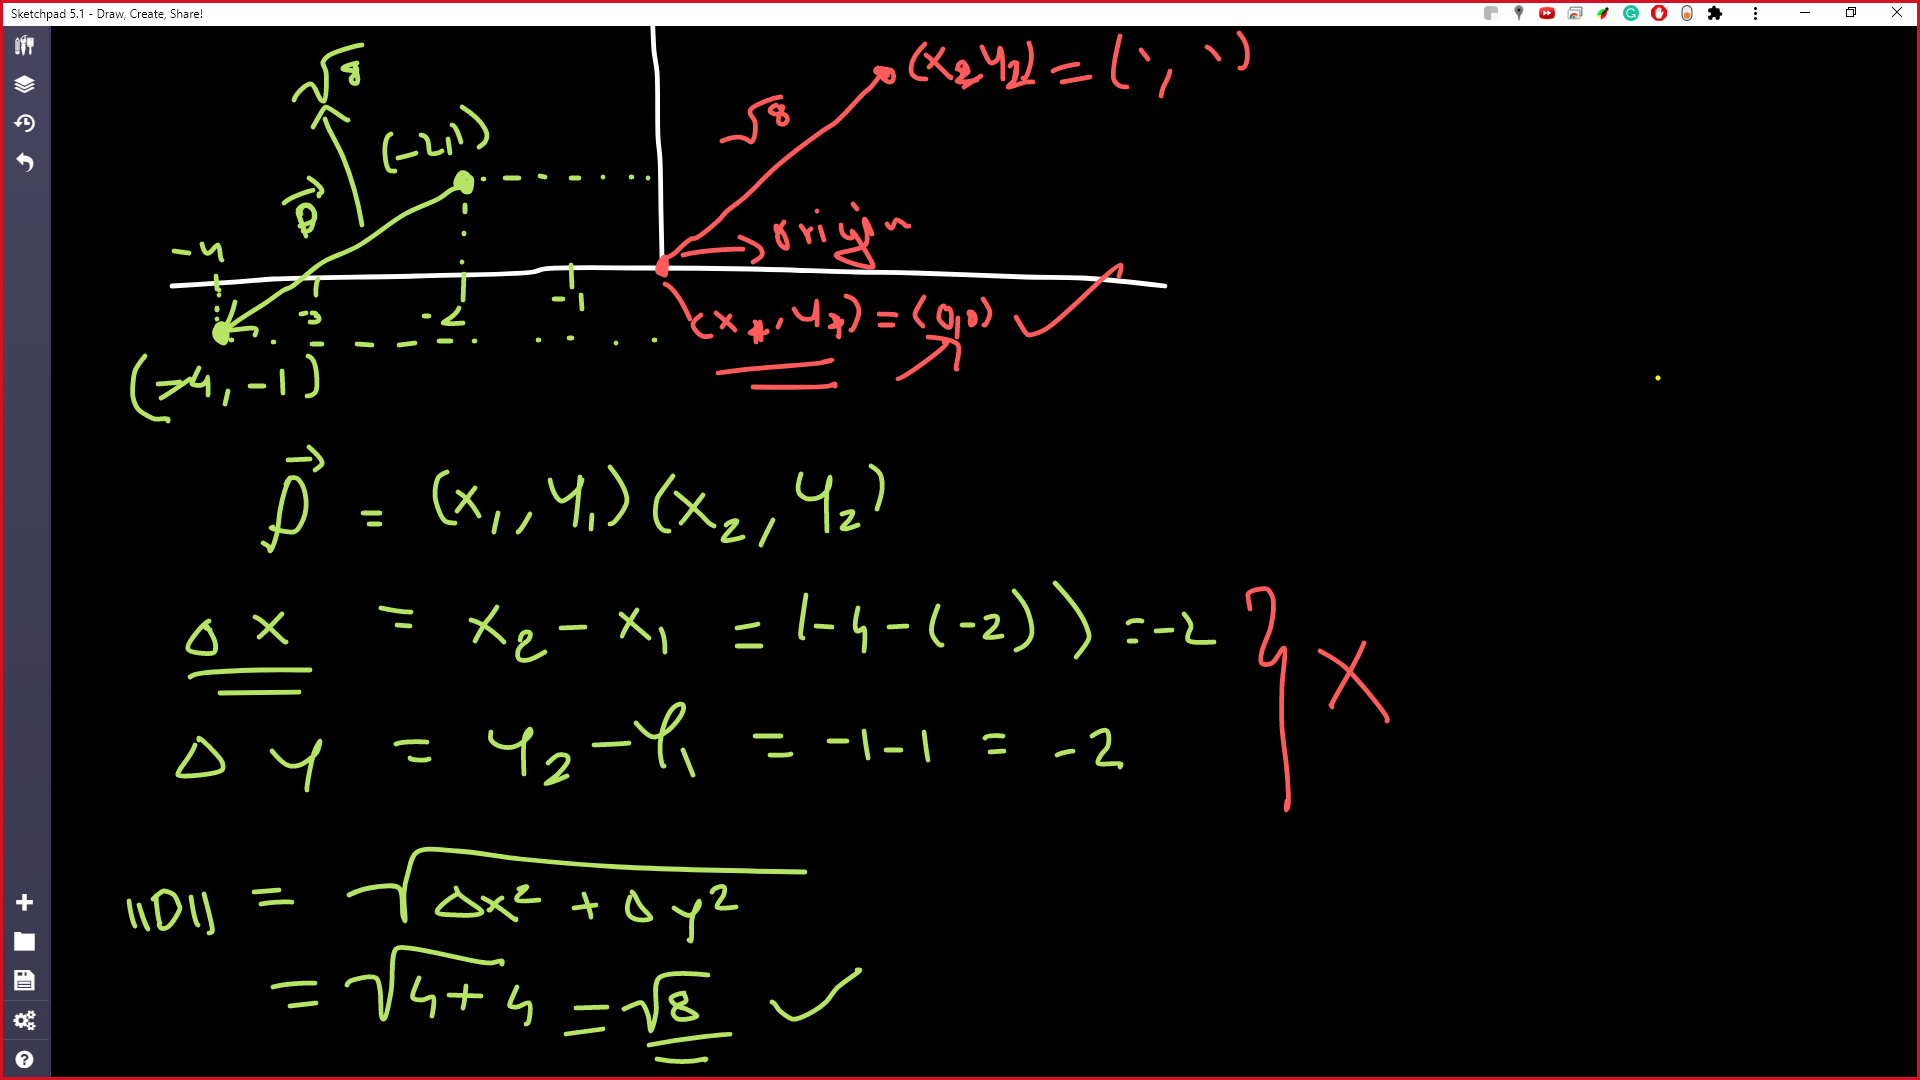 Sketchpad 5.1 - Draw, Create, Share!
√8
(-2,1)
D⃗
-4
-3
-2
-1
(-4, -1)
(x₂ y₂) = ( , )
√8
origin
= (0,0)
D⃗ = (x₁, y₁) (x₂, y₂)
Δ x = x₂ - x₁ = (-4 - (-2)) = -2
Δ y = y₂ - y₁ = -1 - 1 = -2
x
||D|| = √Δx² + Δy²
= √4+4 = √8